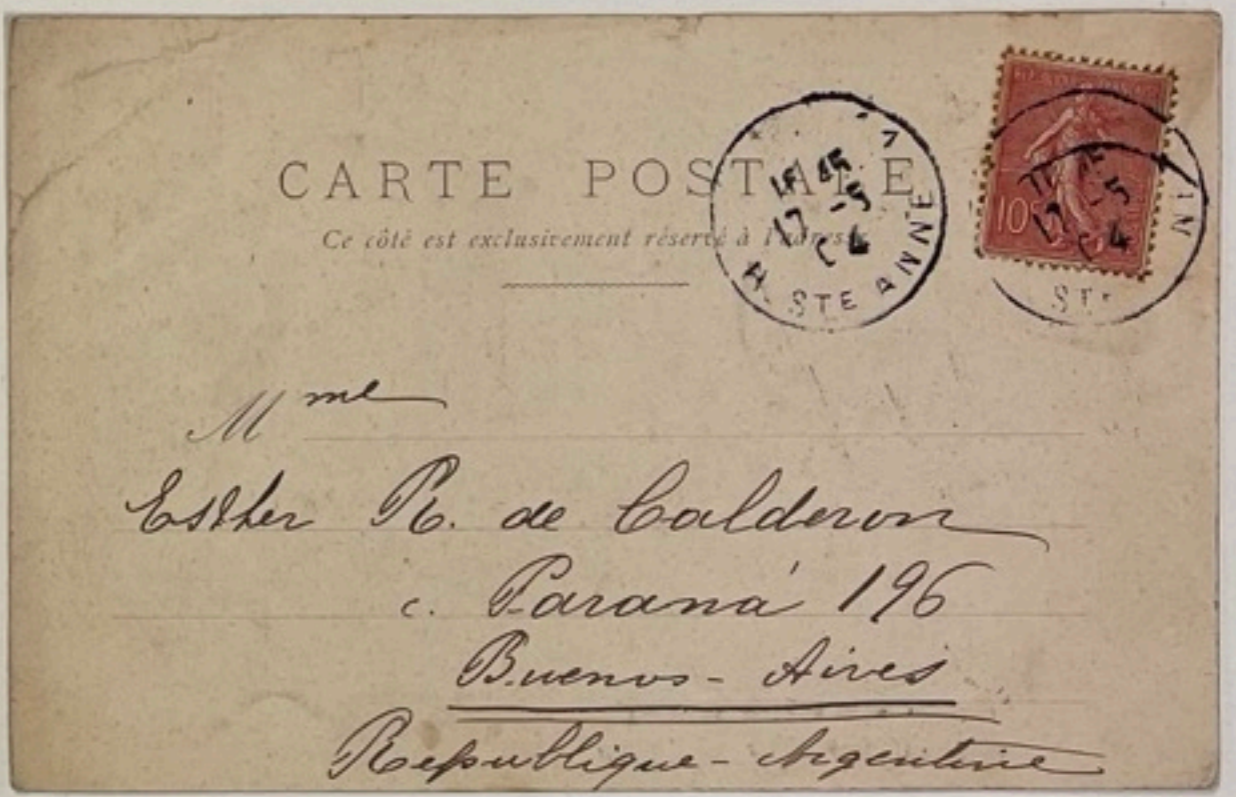 CARTE POSTALE
Ce côté est exclusivement réservé à l'adresse
16 45
17 -5
04
STE ANNE
10
17 -5
4
IN
Mme
Esther R. de Calderon
c. Paraná 196
Buenos-Aires
Republique-Argentine